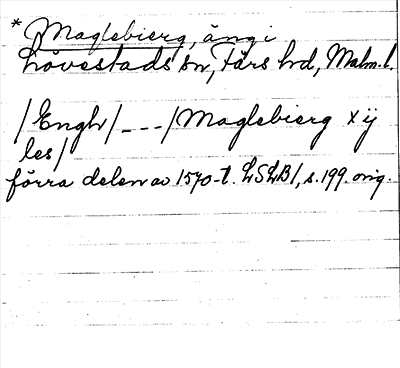 * Maglebierg, äng i
Lövestads sn, Färs hd, Malm. l.
/Enghr/ _ _ _ /Maglebierg x ij
les/
förra delen av 1570-t. LSLB1, s. 199. orig.